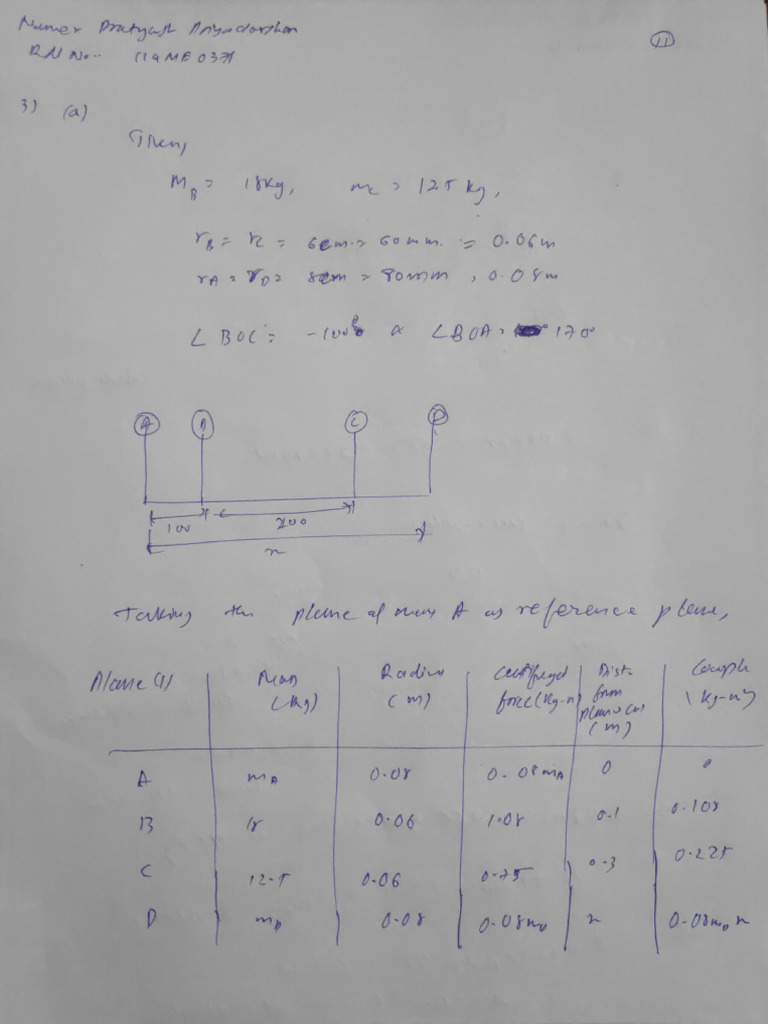 Name:- Pratyush Priyadarshan
RN No:- 119ME0371
11
3) (a)
Given,
M_B = 18kg, m_C = 12.5 kg,
r_B = r_C = 6cm = 60mm = 0.06m
r_A = r_D = 8cm = 80mm, 0.08m
∠BOC = -100° & ∠BOA = 170°
A B C D
100 200
x
Taking the plane of mass A as reference plane,
Plane (1) | Mass (kg) | Radius (m) | Centrifugal force (kg-m) | Dist. from plane (m) | Couple (kg-m²)
A | m_A | 0.08 | 0.08m_A | 0 | 0
B | 18 | 0.06 | 1.08 | 0.1 | 0.108
C | 12.5 | 0.06 | 0.75 | 0.3 | 0.225
D | m_D | 0.08 | 0.08m_D | x | 0.08m_D x